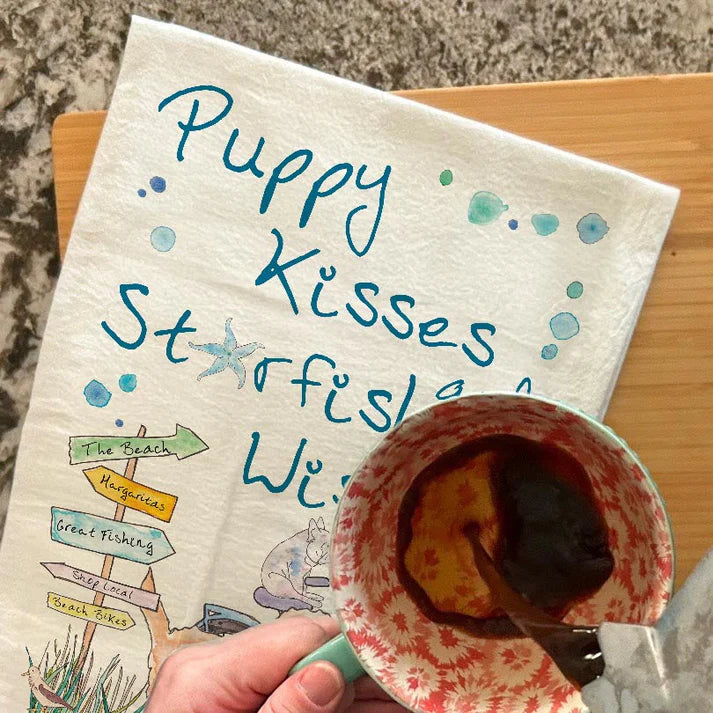 Puppy
Kisses
Starfish
The Beach
Margaritas
Great Fishing
Shop Local
Beach Bikes